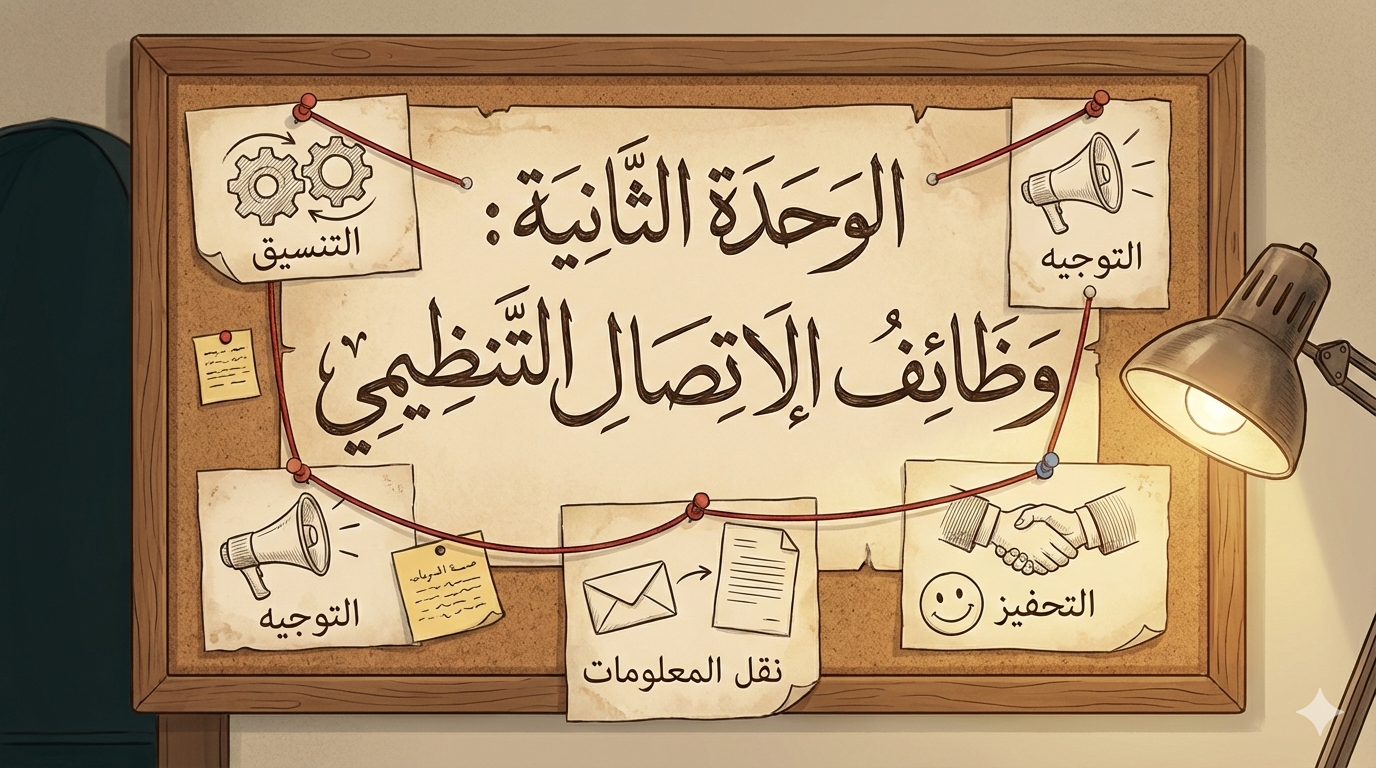 الوَحَدَة الثَّانِيَة:
وَظَائِفُ الإلَاتِصَالِ التَّنظِيمِي
التوجيه
التنسيق
التوجيه
نقل المعلومات
التحفيز